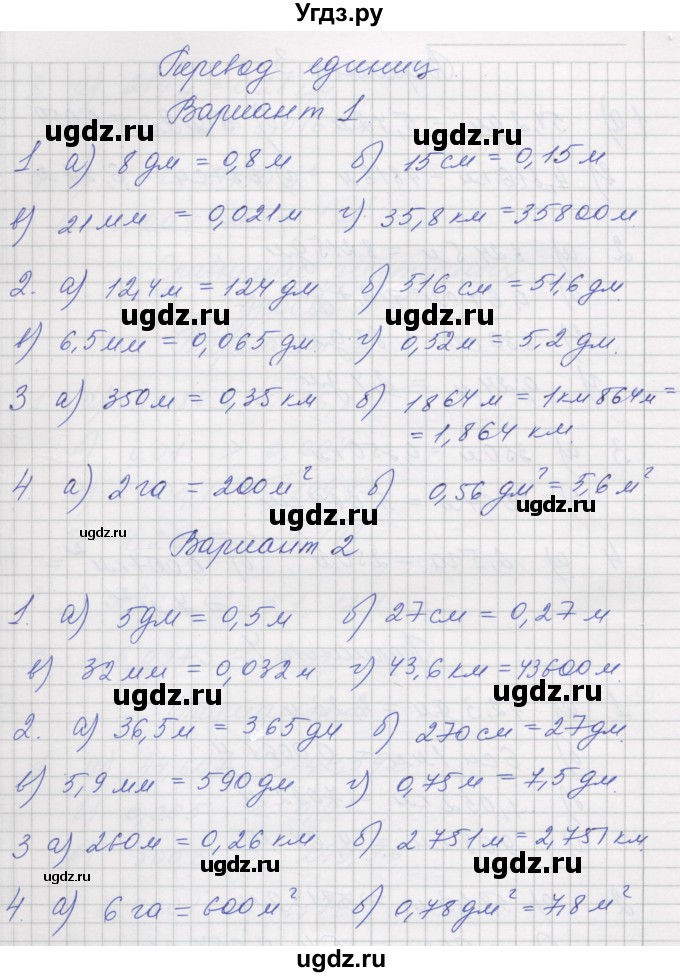 Угдз.ру
Перевод единиц
Вариант 1
ugdz.ru ugdz.ru
1. а) 8 дм = 0,8 м б) 15 см = 0,15 м
в) 21 мм = 0,021 м г) 35,8 км = 35800 м
2. а) 12,4 м = 124 дм б) 516 см = 51,6 дм.
ugdz.ru ugdz.ru
в) 6,5 мм = 0,065 дм г) 0,52 м = 5,2 дм.
3 а) 350 м = 0,35 км б) 1864 м = 1 км 864 м =
= 1,864 км.
4. а) 2 га = 200 м² б) 0,56 дм² = 5,6 м²
ugdz.ru ugdz.ru
ugdz.ru
Вариант 2
1. а) 5 дм = 0,5 м б) 27 см = 0,27 м
в) 32 мм = 0,032 м г) 43,6 км = 43600 м.
ugdz.ru ugdz.ru
2. а) 36,5 м = 365 дм б) 270 см = 27 дм.
в) 5,9 мм = 590 дм г) 0,75 м = 7,5 дм.
3 а) 260 м = 0,26 км б) 2751 м = 2,751 км.
ugdz.ru ugdz.ru
ugdz.ru
4. а) 6 га = 600 м² б) 0,78 дм² = 7,8 м²
ugdz.ru ugdz.ru